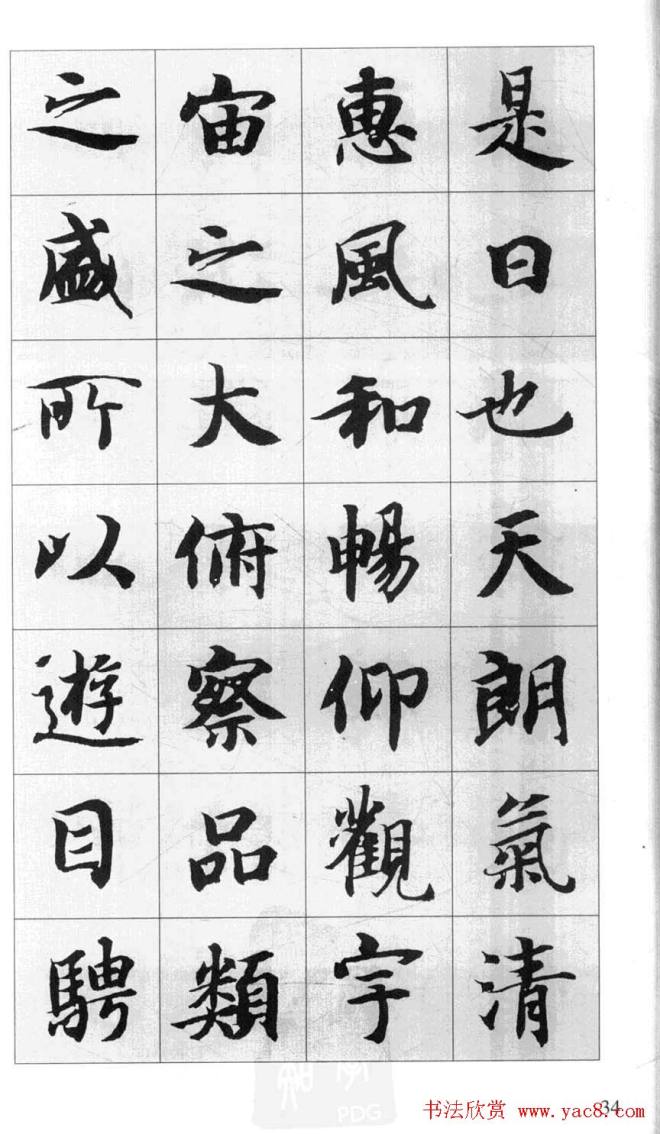 是日也天朗氣清
惠風和暢仰觀宇
宙之大俯察品類
之盛所以遊目騁
34
书法欣赏 www.yac8.com
PDG